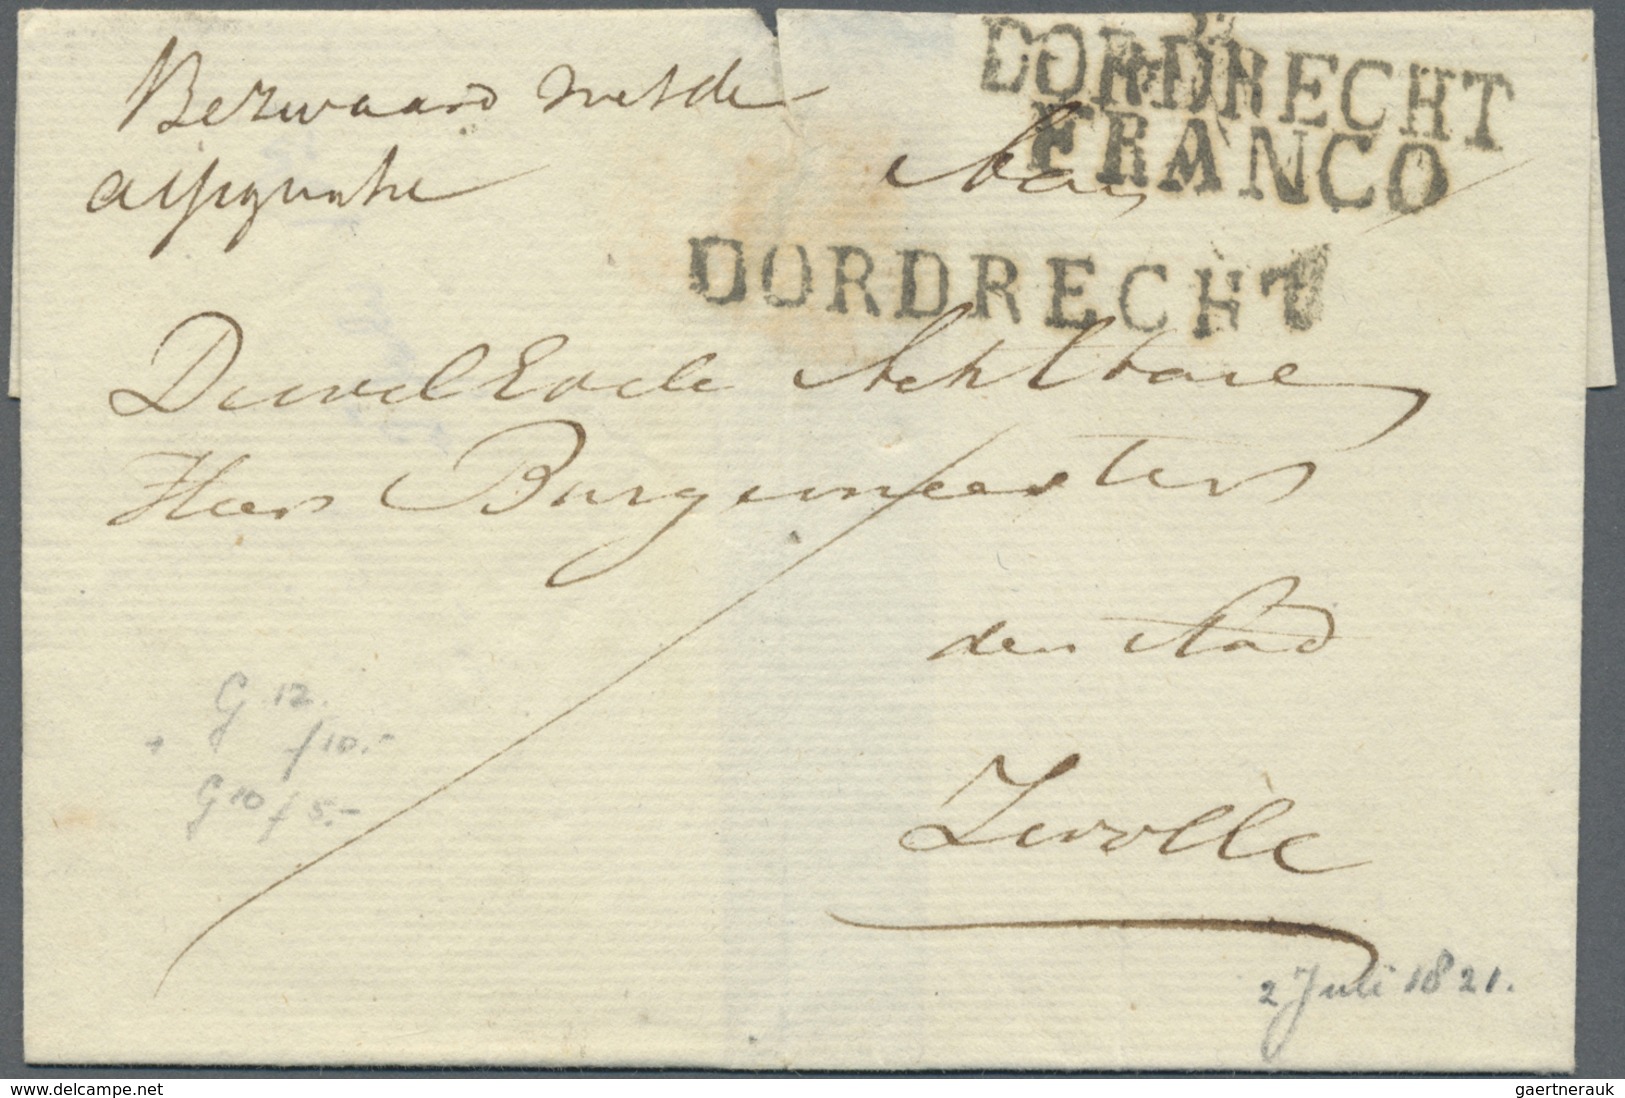 DORDRECHT
FRANCO
Bezwaard met de
assignatie
Aan
DORDRECHT
De Wel Ede Achtbare
Heer Burgemeester
der Stad
Zwolle
G 12.
+ f 10.-
G 10 f 5.-
2 Juli 1821.
www.delcampe.net
gaertnerauk